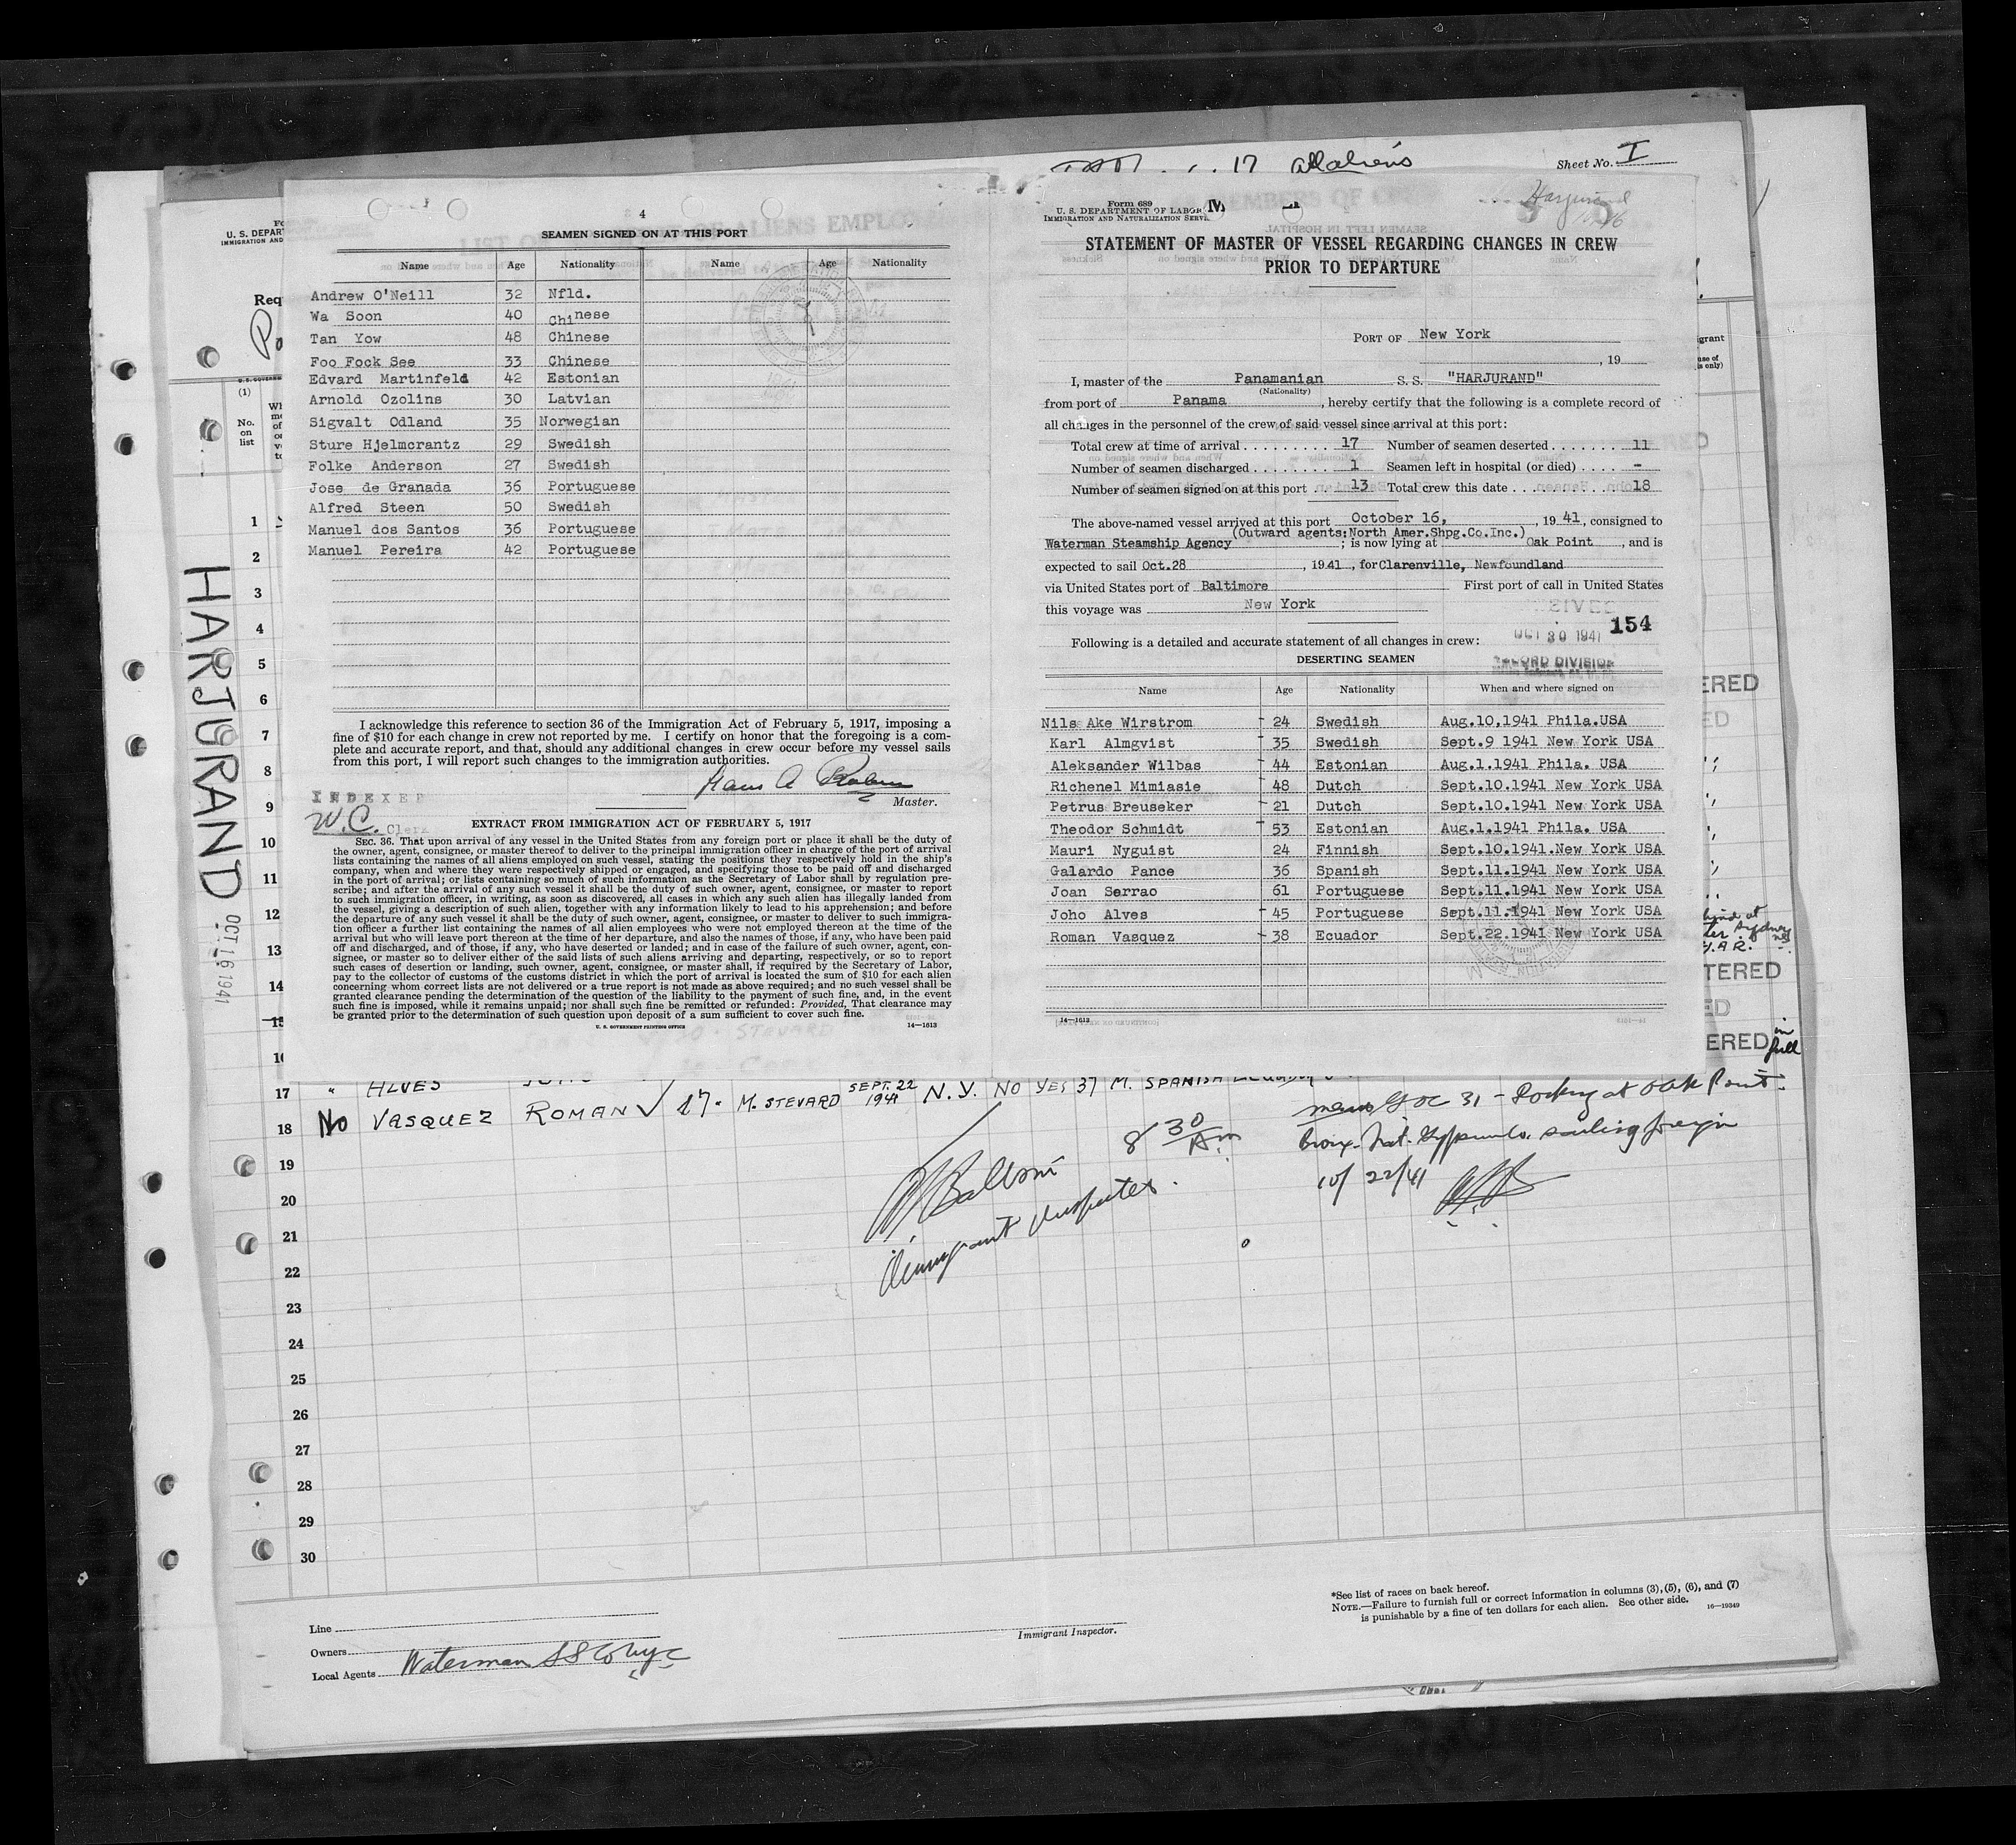 17 all aliens
Sheet No. I
U. S. DEPAR
IMMIGRATION AND
Req
(1)
No.
on
list
HARJURAND
OCT 16 1941
4
SEAMEN SIGNED ON AT THIS PORT
Name Age Nationality Name Age Nationality
Andrew O'Neill 32 Nfld.
Wa Soon 40 Chinese
Tan Yow 48 Chinese
Foo Fock See 33 Chinese
Edvard Martinfeld 42 Estonian
Arnold Ozolins 30 Latvian
Sigvalt Odland 35 Norwegian
Sture Hjelmcrantz 29 Swedish
Folke Anderson 27 Swedish
Jose de Granada 36 Portuguese
Alfred Steen 50 Swedish
Manuel dos Santos 36 Portuguese
Manuel Pereira 42 Portuguese
I acknowledge this reference to section 36 of the Immigration Act of February 5, 1917, imposing a
fine of $10 for each change in crew not reported by me. I certify on honor that the foregoing is a com-
plete and accurate report, and that, should any additional changes in crew occur before my vessel sails
from this port, I will report such changes to the immigration authorities.
Master.
INDEXED
W.C. Clerk
EXTRACT FROM IMMIGRATION ACT OF FEBRUARY 5, 1917
SEC. 36. That upon arrival of any vessel in the United States from any foreign port or place it shall be the duty of
the owner, agent, consignee, or master thereof to deliver to the principal immigration officer in charge of the port of arrival
lists containing the names of all aliens employed on such vessel, stating the positions they respectively hold in the ship's
company, when and where they were respectively shipped or engaged, and specifying those to be paid off and discharged
in the port of arrival; or lists containing so much of such information as the Secretary of Labor shall by regulation pre-
scribe; and after the arrival of any such vessel it shall be the duty of such owner, agent, consignee, or master to report
to such immigration officer, in writing, as soon as discovered, all cases in which any such alien has illegally landed from
the vessel, giving a description of such alien, together with any information likely to lead to his apprehension; and before
the departure of any such vessel it shall be the duty of such owner, agent, consignee, or master to deliver to such immigra-
tion officer a further list containing the names of all alien employees who were not employed thereon at the time of the
arrival but who will leave port thereon at the time of her departure, and also the names of those, if any, who have been paid
off and discharged, and of those, if any, who have deserted or landed; and in case of the failure of such owner, agent, con-
signee, or master so to deliver either of the said lists of such aliens arriving and departing, respectively, or so to report
such cases of desertion or landing, such owner, agent, consignee, or master shall, if required by the Secretary of Labor,
pay to the collector of customs of the customs district in which the port of arrival is located the sum of $10 for each alien
concerning whom correct lists are not delivered or a true report is not made as above required; and no such vessel shall be
granted clearance pending the determination of the question of the liability to the payment of such fine, and, in the event
such fine is imposed, while it remains unpaid; nor shall such fine be remitted or refunded: Provided, That clearance may
be granted prior to the determination of such question upon deposit of a sum sufficient to cover such fine.
U. S. GOVERNMENT PRINTING OFFICE 14—1613
Form 689
U. S. DEPARTMENT OF LABOR
IMMIGRATION AND NATURALIZATION SERV.
(IV)
Harjurand
10/16
STATEMENT OF MASTER OF VESSEL REGARDING CHANGES IN CREW
PRIOR TO DEPARTURE
PORT OF New York
, 19
I, master of the Panamanian S. S. "HARJURAND"
(Nationality)
from port of Panama, hereby certify that the following is a complete record of
all changes in the personnel of the crew of said vessel since arrival at this port:
Total crew at time of arrival 17 Number of seamen deserted 11
Number of seamen discharged 1 Seamen left in hospital (or died) -
Number of seamen signed on at this port 13 Total crew this date 18
The above-named vessel arrived at this port October 16, , 1941, consigned to
(Outward agents:North Amer.Shpg.Co.Inc.)
Waterman Steamship Agency ; is now lying at Oak Point , and is
expected to sail Oct.28 , 1941 , for Clarenville, Newfoundland
via United States port of Baltimore First port of call in United States
this voyage was New York
OCT 30 1941 154
Following is a detailed and accurate statement of all changes in crew:
RECORD DIVISION
DESERTING SEAMEN
Name Age Nationality When and where signed on
Nils Ake Wirstrom - 24 Swedish Aug.10,1941 Phila.USA
Karl Almgvist - 35 Swedish Sept.9 1941 New York USA
Aleksander Wilbas - 44 Estonian Aug.1.1941 Phila. USA
Richenel Mimiasie 48 Dutch Sept.10.1941 New York USA
Petrus Breuseker - 21 Dutch Sept.10.1941 New York USA
Theodor Schmidt - 53 Estonian Aug.1.1941 Phila. USA
Mauri Nyguist 24 Finnish Sept.10.1941.New York USA
Galardo Pance 36 Spanish Sept.11.1941 New York USA
Joan Serrao 61 Portuguese Sept.11.1941 New York USA
Joho Alves - 45 Portuguese Sept.11.1941 New York USA
Roman Vasquez - 38 Ecuador Sept.22.1941 New York USA
14—1613
1
2
3
4
5
6
7
8
9
10
11
12
13
14
15
16
17 " ALVES
18 No VASQUEZ ROMAN ✓ 17. M. STEVARD SEPT. 22 1941 N.Y. NO YES 37 M. SPANISH
19
20
21
22
23
24
25
26
27
28
29
30
8 30 Am
Immigrant Inspector.
Docking at Oak Point
sailing foreign
10/22/41
Line
Owners
Local Agents Waterman SS Co NYC
Immigrant Inspector.
*See list of races on back hereof.
NOTE.—Failure to furnish full or correct information in columns (3), (5), (6), and (7)
is punishable by a fine of ten dollars for each alien. See other side. 16—19349